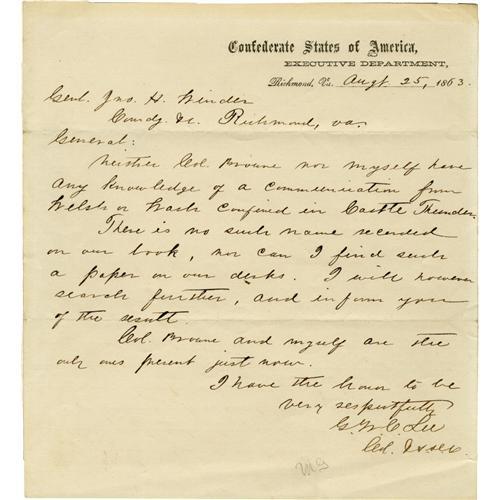 Confederate States of America,
EXECUTIVE DEPARTMENT,
Richmond, Va. Augt. 25, 1863.
Genl. Jno. H. Winder
Comdg &c. Richmond, Va.
General:
Neither Col. Browne nor myself have
any knowledge of a communication from
Welsh or Wash confined in Castle Thunder.
There is no such name recorded
on our book, nor can I find such
a paper on our desks. I will however
search further, and inform you
of the result.
Col. Browne and myself are the
only ones present just now.
I have the honor to be
very respectfully
G. W. C. Lee
Col. &